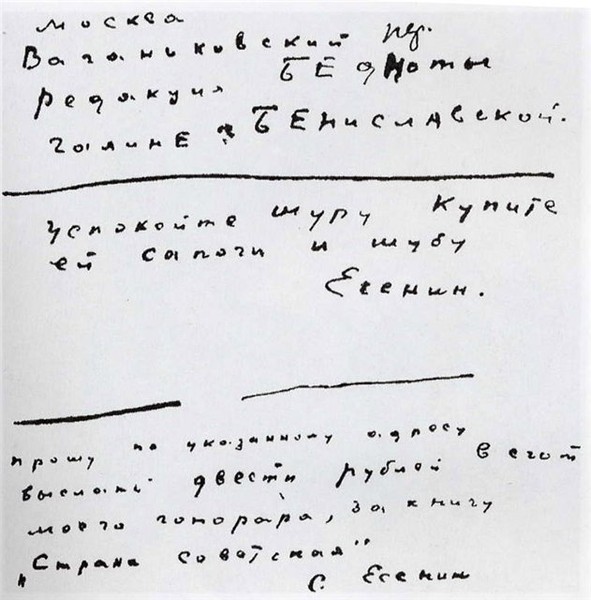 Москва
Ваганьковский пер.
редакция БЕдноты
галинЕ БЕниславской.
Успокойте шуру купите
ей сапоги и шубу
Есенин.
прошу по указанному адресу
выслать двести рублей в счот
моего гонорара, за книгу
„Страна советская"
С Есенин